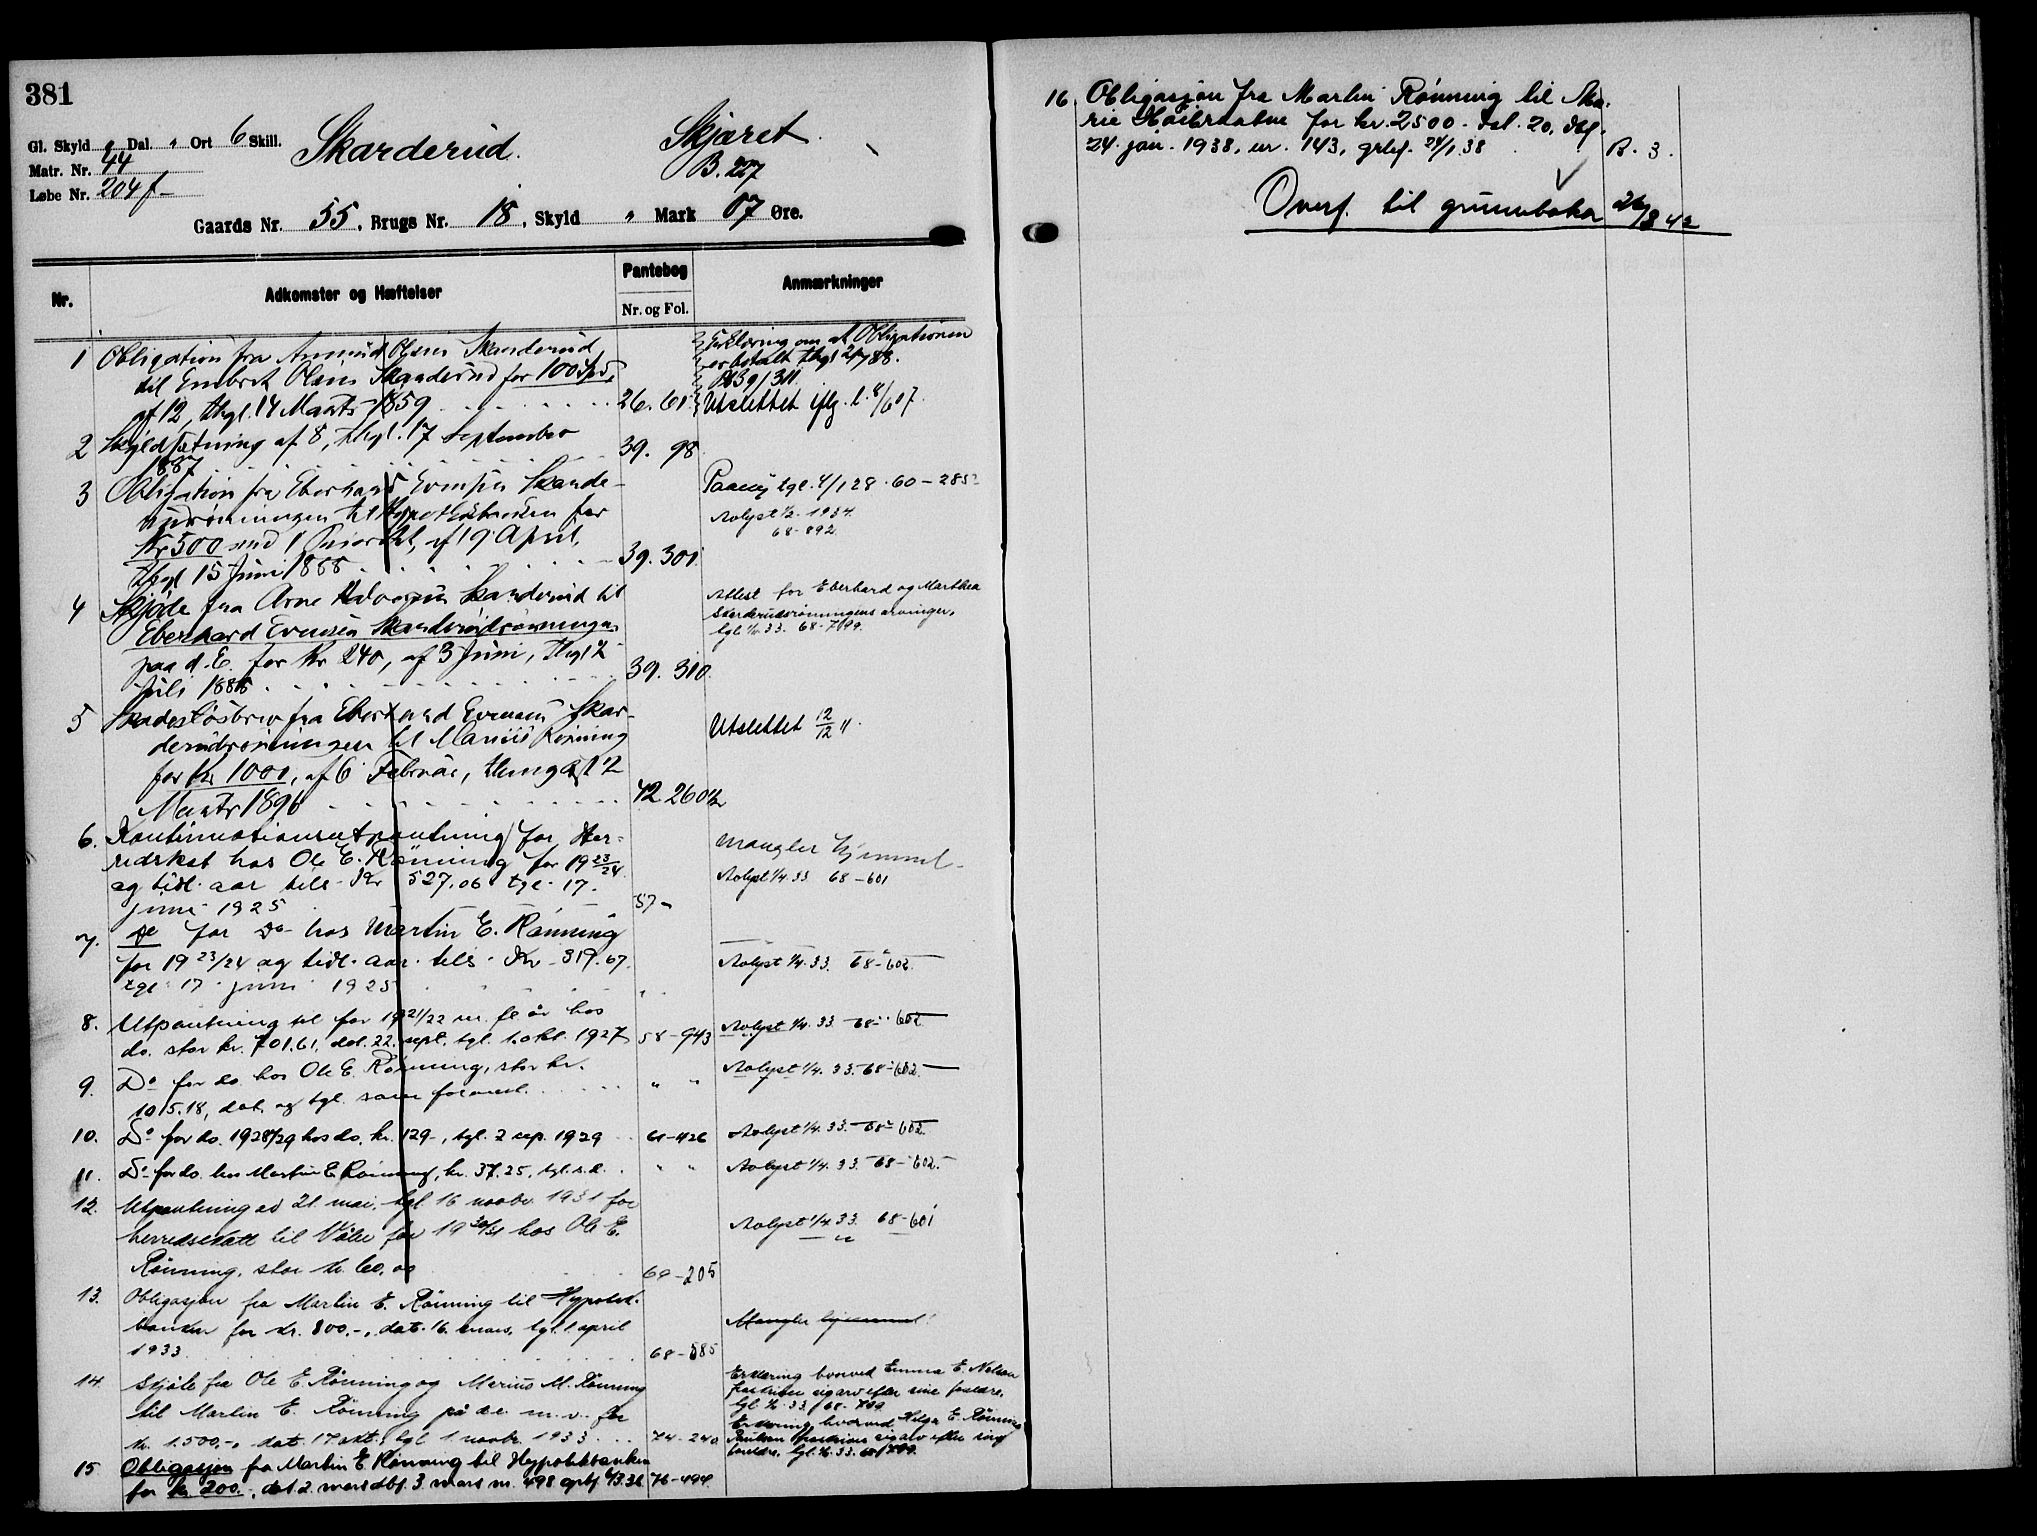 381
Gl. Skyld " Dal. " Ort 6 Skill.
Matr. Nr. 44
Løbe Nr. 204 f
Skarderud.
Skjæret
B. 227
Gaards Nr. 55, Brugs Nr. 18, Skyld " Mark 07 Øre.
Nr.
Adkomster og Hæftelser
Pantebog
Nr. og Fol.
Anmærkninger
1 Obligation fra Amund Olsen Skarderud
til Embret Olsen Skarderud for 100 Spd,
af 12, thgl. 14 Marts 1859 26. 61
Erklæring om at Obligationen
er betalt thgl 88.
39/311.
Utslettet iflg. l. 8/6 07.
2 Skyldsætning af 8, thgl. 17 September
1887 39. 98
3 Obligation fra Eberhard Evensen Skarde-
rudrønningen til Hypothekbanken for
Kr 500 med 1 Prioritet, af 19 April,
thgl 15 Juni 1888 39. 301
Paany tgl. 4/1 28. 60-285
Avlyst 1934.
68-892
4 Skjøde fra Arne Skarderud til
Eberhard Evensen Skarderudrønningen
paa d. E. for Kr 240, af 3 Juni, thgl 2
Juli 1888 39. 310.
Attest for Eberhard og Marthea
Skarderudrønningens arvinger,
tgl. 33. 68-799.
5 Skadesløsbrev fra Eberhard Evensen Skar-
derudrønningen til Marius Rønning
for Kr 1000, af 6 Februar, thinglyst 2
Marts 1896 42 260
Utslettet 12/12 11.
6. Kontinuationsutpantning for Her-
redskat hos Ole E. Rønning for 1923/24
og tidl. aar tils. Kr 527.06 tgl. 17.
juni 1925 57-
Mangler hjemmel
Avlyst 1/4 33 68-601
7. do for Do hos Martin E. Rønning
for 1923/24 og tidl. aar. tils. Kr. 319.67.
tgl. 17 juni 1925
Avlyst 1/4. 33. 68-602.
8. Utpantning til for 1921/22 m. fl. år hos
do. stor kr. 701.61, dat. 22. sept. tgl. 1. okt. 1927 58-943
Avlyst 1/4. 33. 68-602
9. Do for do. hos Ole E. Rønning, stor kr.
1015.18, dat. og tgl. som foranst. " "
Avlyst 1/4. 33. 68-602.
10. Do for do. 1928/29 hos do. kr. 129-, tgl. 2 sep. 1929 61-426
Avlyst 1/4. 33. 68-602.
11. Do for do. hos Martin E. Rønning, kr. 37.25, tgl. s.d. " "
Avlyst 1/4. 33. 68-602.
12. Utpantning av 21. mai, tgl. 16 novbr. 1931 for
herredsskatt til Våler for 1930/31 hos Ole E.
Rønning, stor kr. 60,00 69-205
Avlyst 1/4 33. 68-601
13. Obligasjon fra Martin E. Rønning til Hypotek-
banken for kr. 800.-, dat. 16. mars, tgl. 1 april
1933 68-585
Mangler hjemmel!
14. Skjøte fra Ole E. Rønning og Marius M. Rønning
til Martin E. Rønning på d.e. m.v. for
kr. 1.500.-, dat. 17 okt. tgl. 1 novbr. 1933 74-240
Erklæring hvorved Emma E. Nelson
fraskriver sig arv efter sine foreldre,
tgl. 33. 68-799
Erklæring hvorved Helga E. Rønning
fraskriver sig arv efter sine
foreldre, tgl. 33. 68/799.
15 Obligasjon fra Martin E. Rønning til Hypotekbanken
for kr 200.-, dat 2. mars dbf. 3. mars nr. 498 grbf. 4/3.36 76-494.
16 Obligasjon fra Martin Rønning til Ma-
rie Høibraaten for kr. 2500. dat. 20, dbf.
24. jan. 1938, nr. 143, grbf. 24/1 38 B. 3.
Overf. til grunnboka 26/8 42